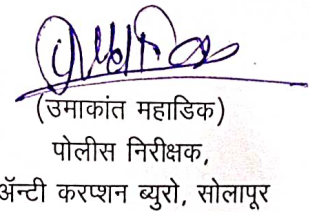 (उमाकांत महाडिक)
पोलीस निरीक्षक,
ॲन्टी करप्शन ब्युरो, सोलापूर